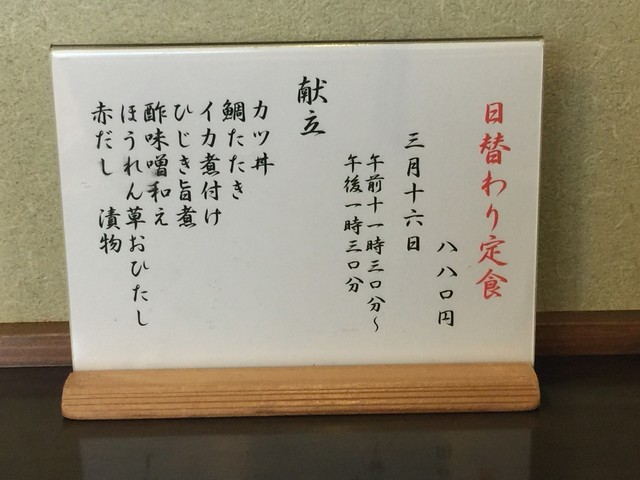 日替わり定食
八八〇円
三月十六日
午前十一時三〇分～
午後一時三〇分
献立
カツ丼
鯛たたき
イカ煮付け
ひじき旨煮
酢味噌和え
ほうれん草おひたし
赤だし　漬物